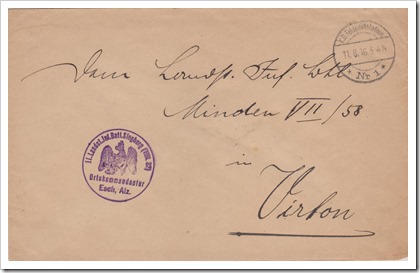 11.8.16.3-4 N
* Nr. 1 *
Dem Landst. Inf. Btl
Minden VII/58
in
Virton
II. Landst. Inf. Batl. Siegburg (VIII. 27)
Ortskommandantur
Esch, Alz.